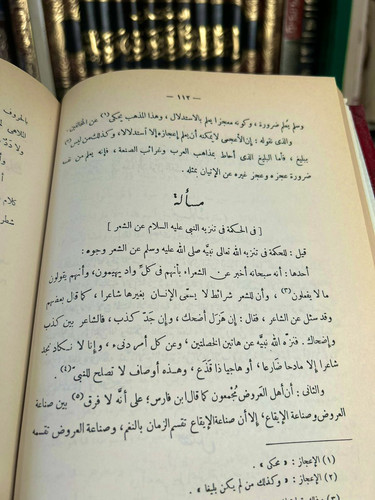 — ١١٢ —
وسلم يُعلم ضرورة ، وكونه معجزا يعلم بالاستدلال ، وهذا المذهب يحكى (١) عن المخالفين.
والذى نقوله : إن الأعجمى لا يمكنه أن يعلم إعجازه إلا استدلالا، وكذلك من ليس (٢)
ببليغ ، فأما البليغ الذى أحاط بمذاهب العرب وغرائب الصنعة ، فإنه يعلم من نفسه
ضرورة عجزه وعجز غيره عن الإتيان بمثله .
مسألة
[ فى الحكمة فى تنزيه النبى عليه السلام عن الشعر ]
قيل : للحكمة فى تنزيه الله تعالى نبيَّه صلى الله عليه وسلم عن الشعر وجوه :
أحدها : أنه سبحانه أخبر عن الشعراء بأنهم فى كلّ واد يهيمون، وأنهم يقولون
ما لا يفعلون (٣) ، وأن للشعر شرائط لا يسمّى الإنسان بغيرها شاعرا ، كما قال بعضهم
وقد سئل عن الشاعر ، فقال : إن هَزَل أضحك ، وإن جَدّ كذب ، فالشاعر بين كذب
وإضحاك . فنزّه الله نبيَّه عن هاتين الخصلتين ، وعن كل أمر دنىء ، وإنا لا نكاد نجد
شاعرا إلا مادحا ضارعا ، أو هاجيا ذا قَذَع ، وهذه أوصاف لا تصلح للنبى (٤) .
والثانى : أن أهل العَروض مُجْمعون كما قال ابن فارس؛ على أنَّه لا فرق (٥) بين صناعة
العروض وصناعة الإيقاع ، إلا أن صناعة الإيقاع تقسم الزمان بالنغم، وصناعة العروض تقسمه
(١) الإعجاز : « محكى » .
(٢) الإعجاز : « وكذلك من لم يكن بليغا » .